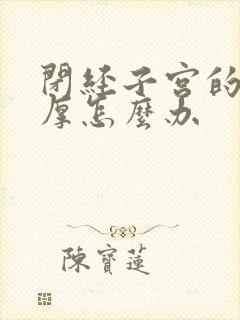 閉經子宮的
厚怎麼办
陳寶蓮